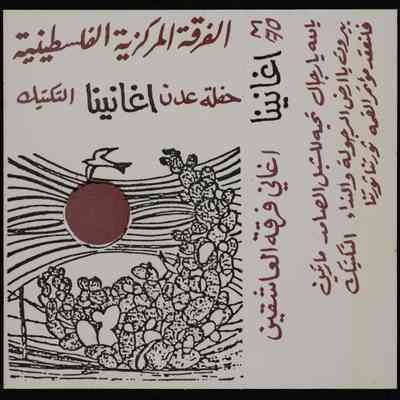 الفرقة المركزية الفلسطينية
حفلة عدن اغانينا التكتيك
M 90
اغانينا
اغاني فرقة العاشقين
يالله يا رجال تحية للشبل الصامد
بيروت يا ارض الرجولة والفداء التكتيك
فلتعقد مؤتمر القمة ثورتنا ثورتنا